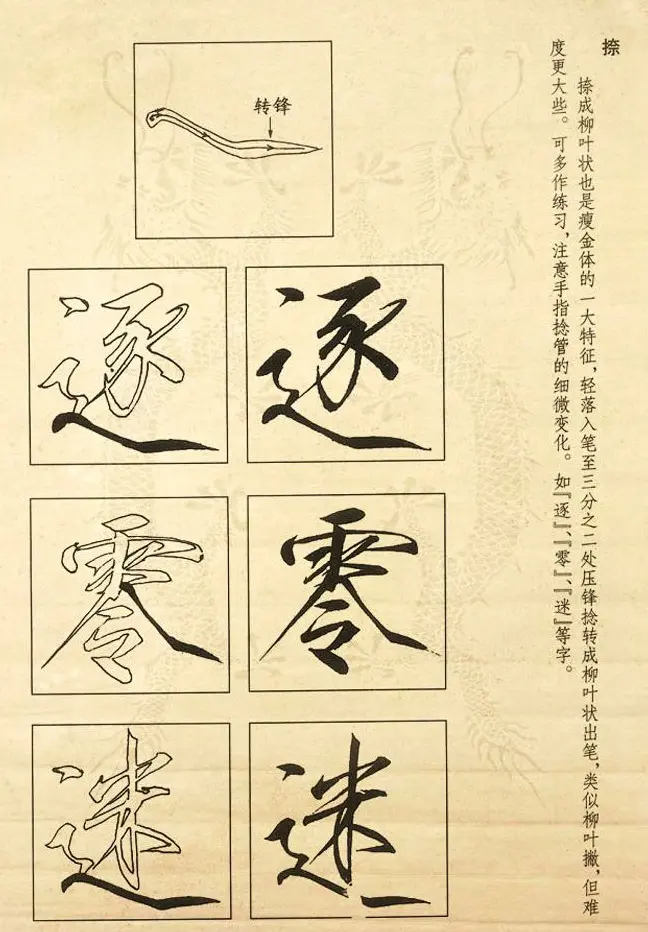 捺
捺成柳叶状也是瘦金体的一大特征，轻落入笔至三分之二处压锋捻转成柳叶状出笔，类似柳叶撇，但难
度更大些。可多作练习，注意手指捻管的细微变化。如『逐』、『零』、『迷』等字。
转锋
逐
逐
零
零
迷
迷